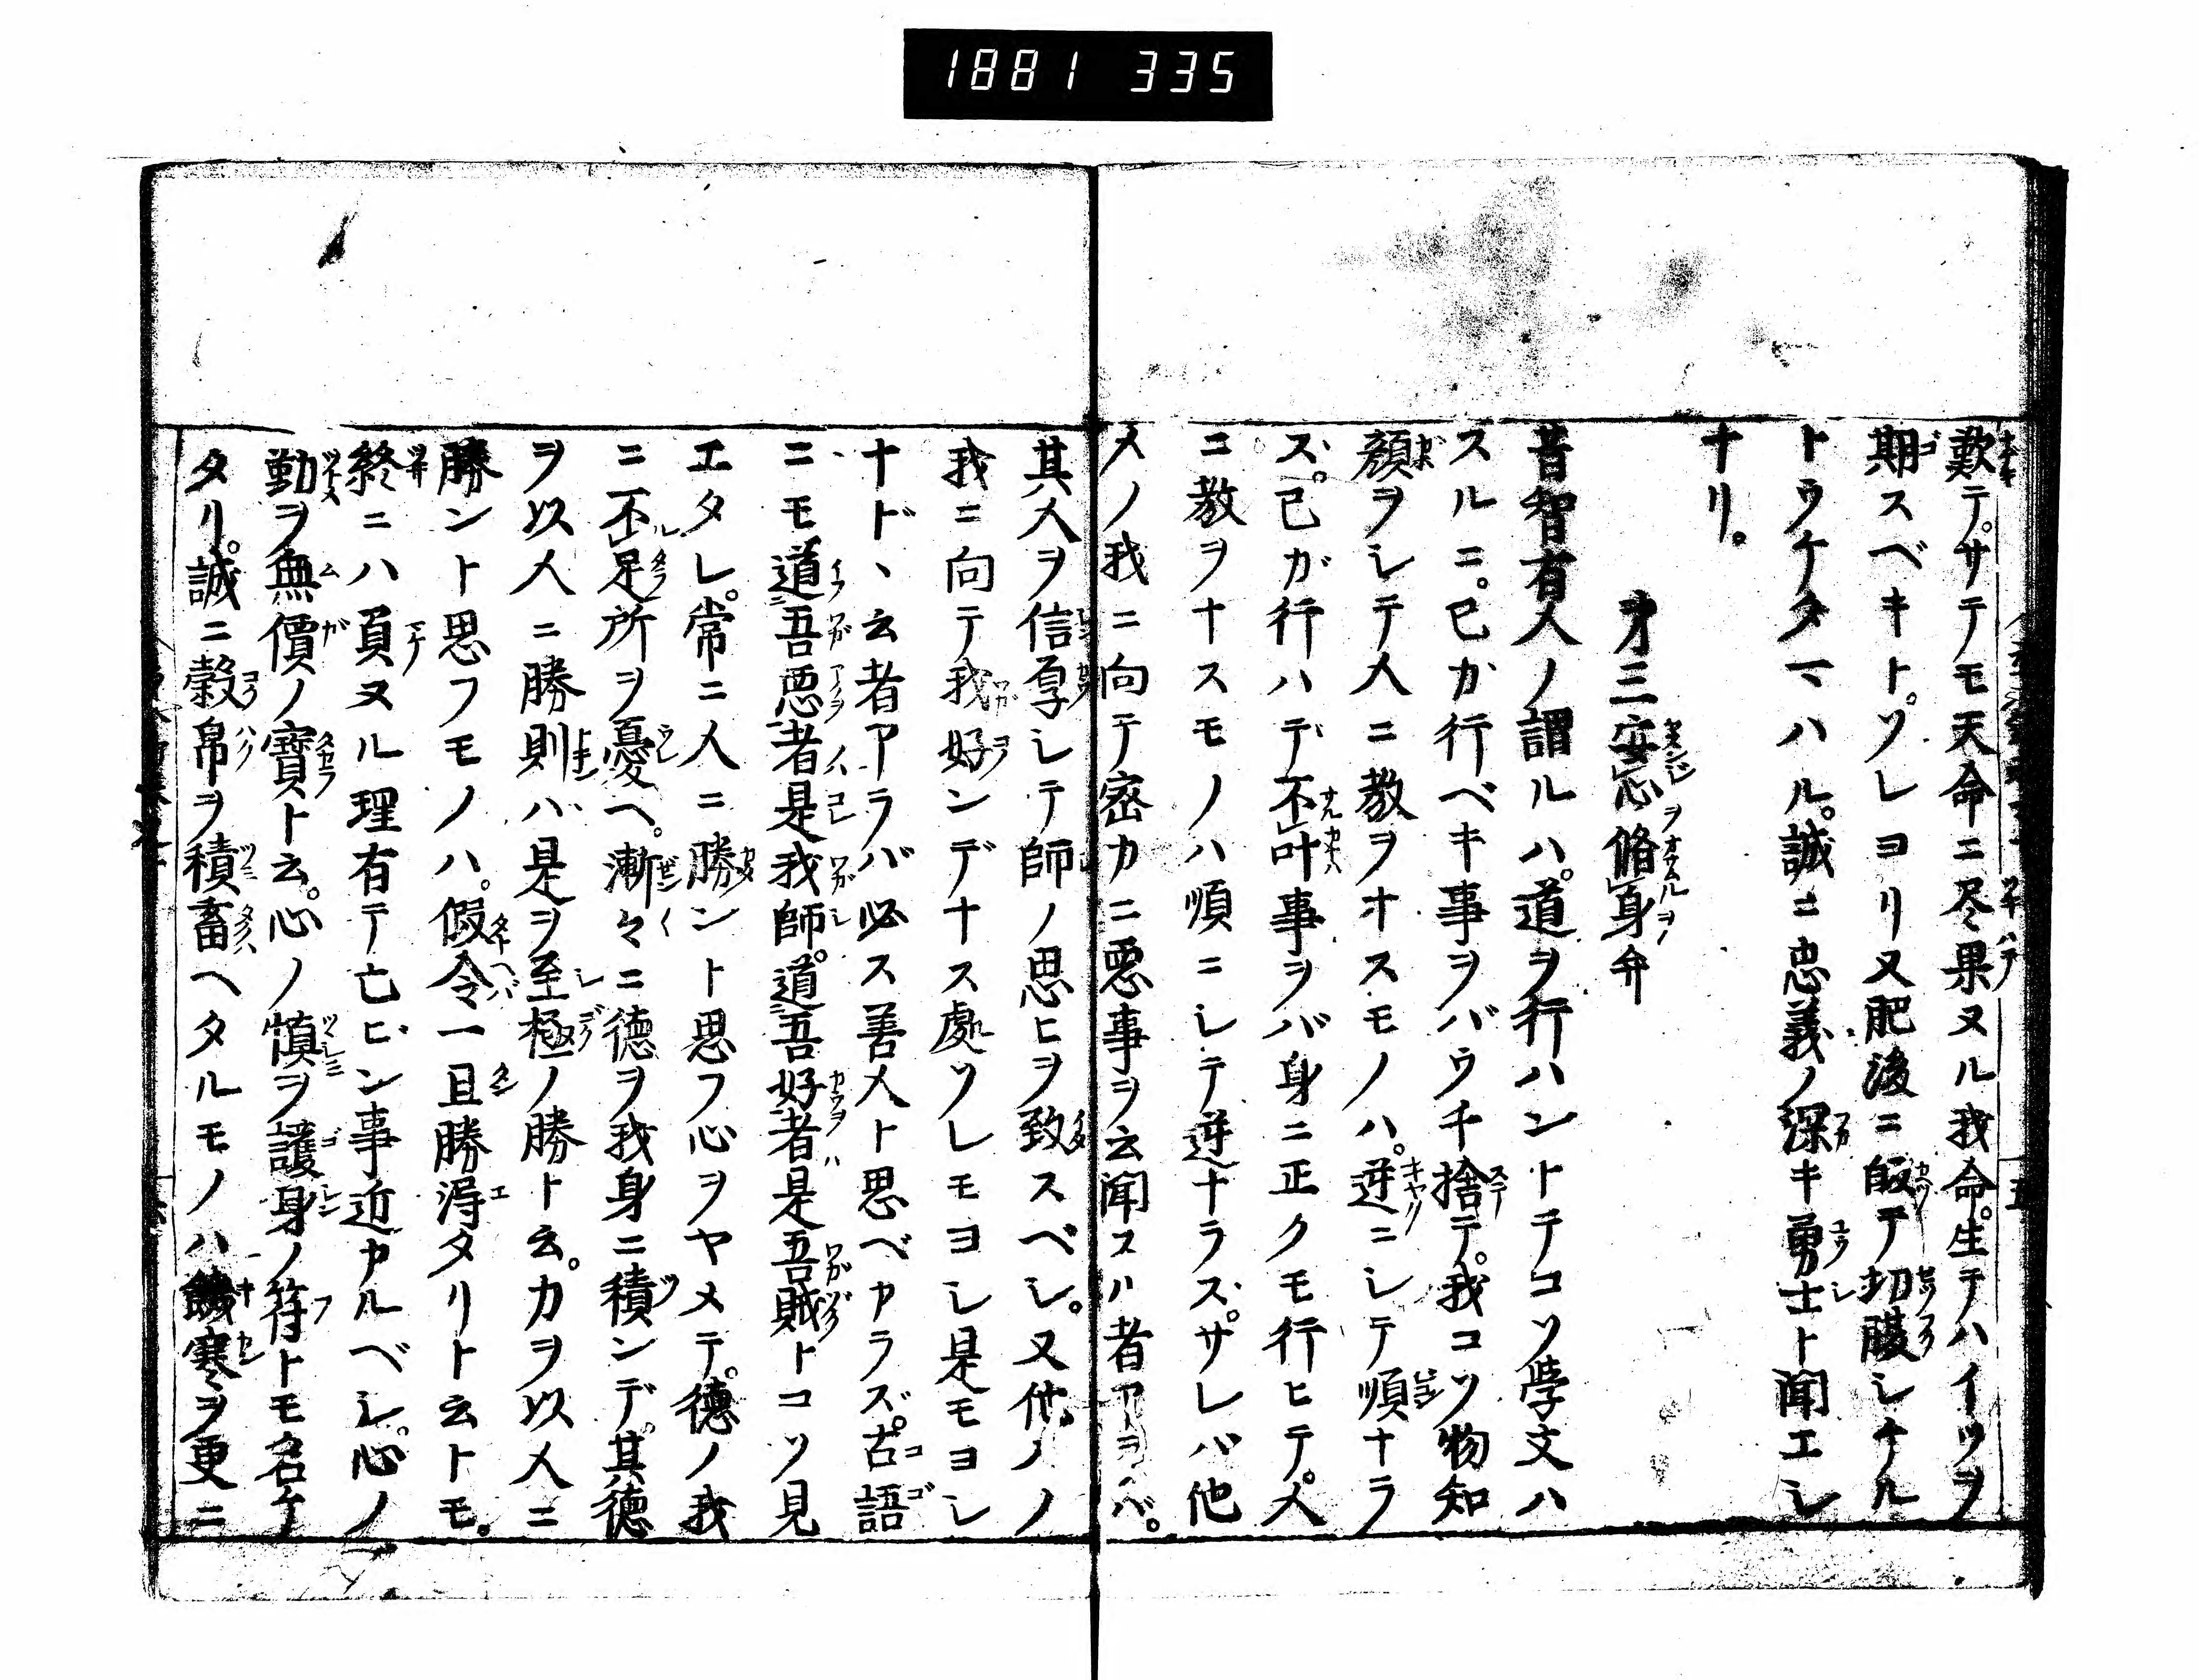 1881 335
歎テ。サテモ天命ニ尽果ヌル我命。生テハイツヲ
期スベキト。ソレヨリ又肥後ニ皈テ切腹シケル
トウケタマハル。誠ニ忠義ノ深キ勇士ト聞エシ
ナリ。
才三安心脩身弁
昔智有人ノ謂ルハ。道ヲ行ハントテコソ学文ハ
スルニ。己カ行ベキ事ヲバウチ捨テ。我コソ物知
顔ヲシテ人ニ教ヲオスモノハ。逆ニシテ順ナラ
ズ。己ガ行ハデ不叶事ヲバ身ニ正クモ行ヒテ。人
ニ教ヲナスモノハ順ニシテ逆ナラズ。サレバ他
人ノ我ニ向テ密カニ悪事ヲ云聞スル者アラバ。
其人ヲ信厚シテ師ノ思ヒヲ致スベシ。又他ノ人
我ニ向テ我好ンデナス處ソレモヨシ是モヨシ
ナド、云者アラバ必ス善人ト思ベカラズ。古語
ニモ道吾悪者是我師。道吾好者是吾賊トコソ見
エタレ。常ニ人ニ勝ント思フ心ヲヤメテ。徳ノ我
ニ不足所ヲ憂ヘ。漸々ニ徳ヲ我身ニ積ンデ。其徳
ヲ以人ニ勝則バ是ヲ至極ノ勝ト云。力ヲ以人ニ
勝ント思フモノハ。假令一旦勝得タリト云トモ。
終ニハ負ヌル理有テ亡ビン事近カルベシ。心ノ
勤ヲ無價ノ寶ト云。心ノ慎ヲ護身ノ符トモ名ケ
タリ。誠ニ穀帛ヲ積畜ヘタルモノハ饑寒ヲ更ニ